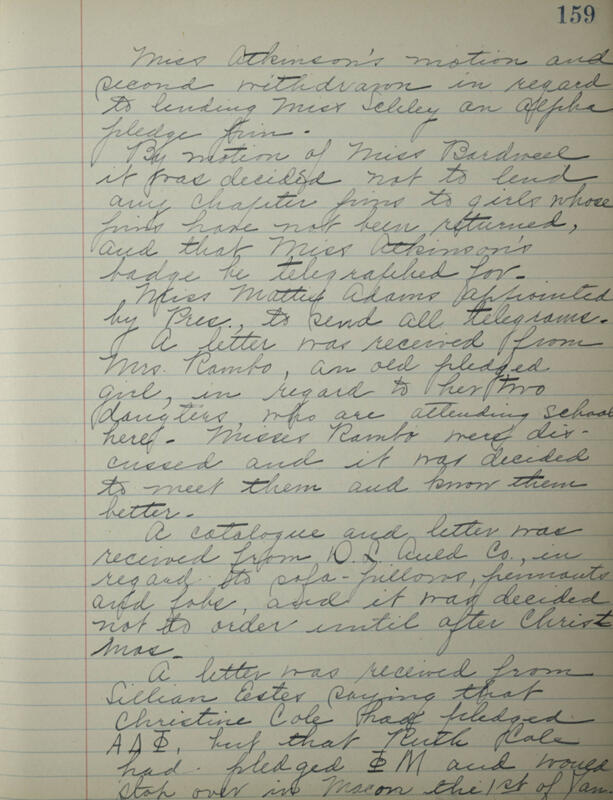 159
Miss Atkinson's motion and
second withdrawn in regard
to lending Miss Schley an Alpha
pledge pin.
By motion of Miss Bardwell
it was decided not to lend
any chapter pins to girls whose
pins have not been returned,
and that Miss Atkinson's
badge be telegraphed for.
Miss Mattie Adams appointed
by Pres., to send all telegrams.
A letter was received from
Mrs. Rambo, an old pledged
girl, in regard to her two
daugters, who are attending school
here. Misses Rambo were dis-
cussed and it was decided
to meet them and know them
better.
A catalogue and letter was
recieved from D. L. Auld Co., in
regard to sofa-pillows, pennants
and fobs, and it was decided
not to order until after Christ
mas.
A letter was received from
Lillian Estes saying that
Christine Cole had pledged
ΑΔΦ, but that Ruth Cole
had pledged ΦΜ and would
stop over in Macon the 1st of Jan.